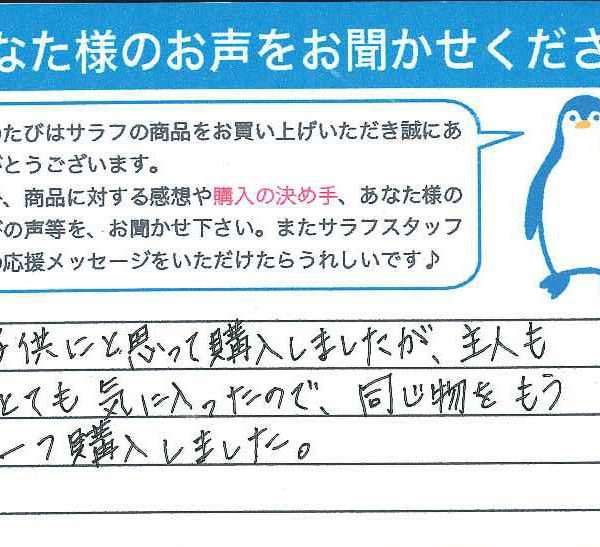 なた様のお声をお聞かせくださ
のたびはサラフの商品をお買い上げいただき誠にあ
がとうございます。
、商品に対する感想や購入の決め手、あなた様の
の声等を、お聞かせ下さい。またサラフスタッフ
の応援メッセージをいただけたらうれしいです♪
子供にと思って購入しましたが、主人も
とても気に入ったので、同じ物をもう
一つ購入しました。